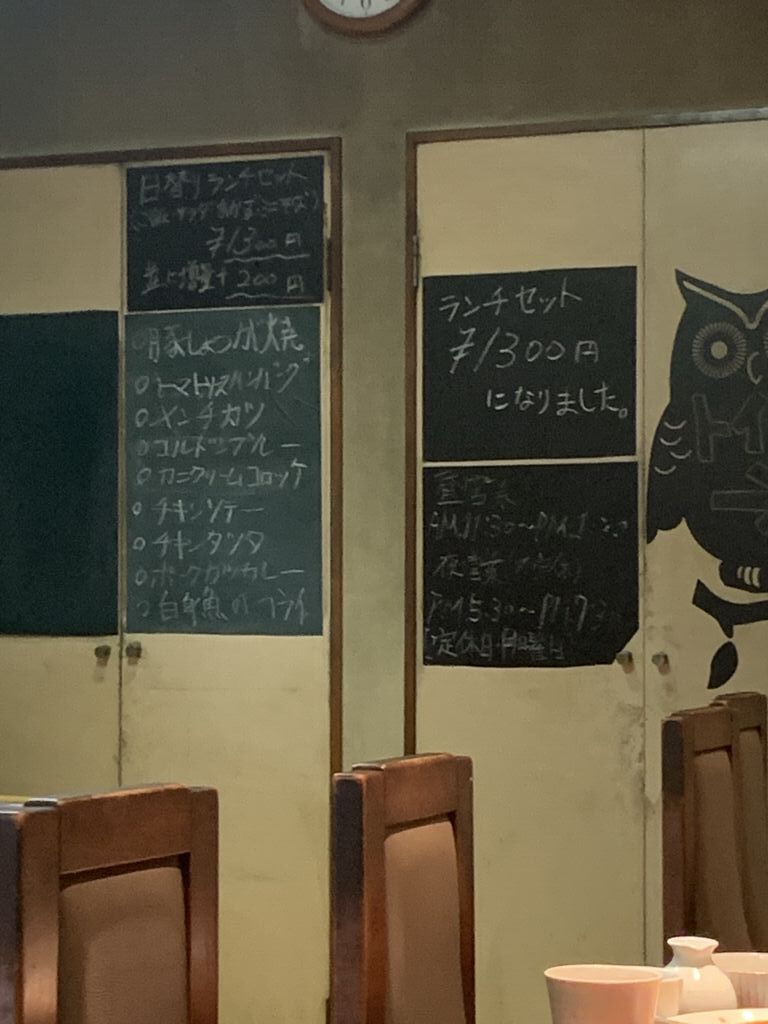 日替りランチセット
¥1300円
並→増量+200円
豚しょうが焼
トマトソースハンバーグ
メンチカツ
コルドンブルー
カニクリームコロッケ
チキンソテー
チキンタツタ
ポークカツカレー
白身魚のフライ
ランチセット
¥1300円
になりました。
昼営業
AM11:30〜PM
夜営業
PM5:30〜PM7:30
定休日 月曜日
トイレ